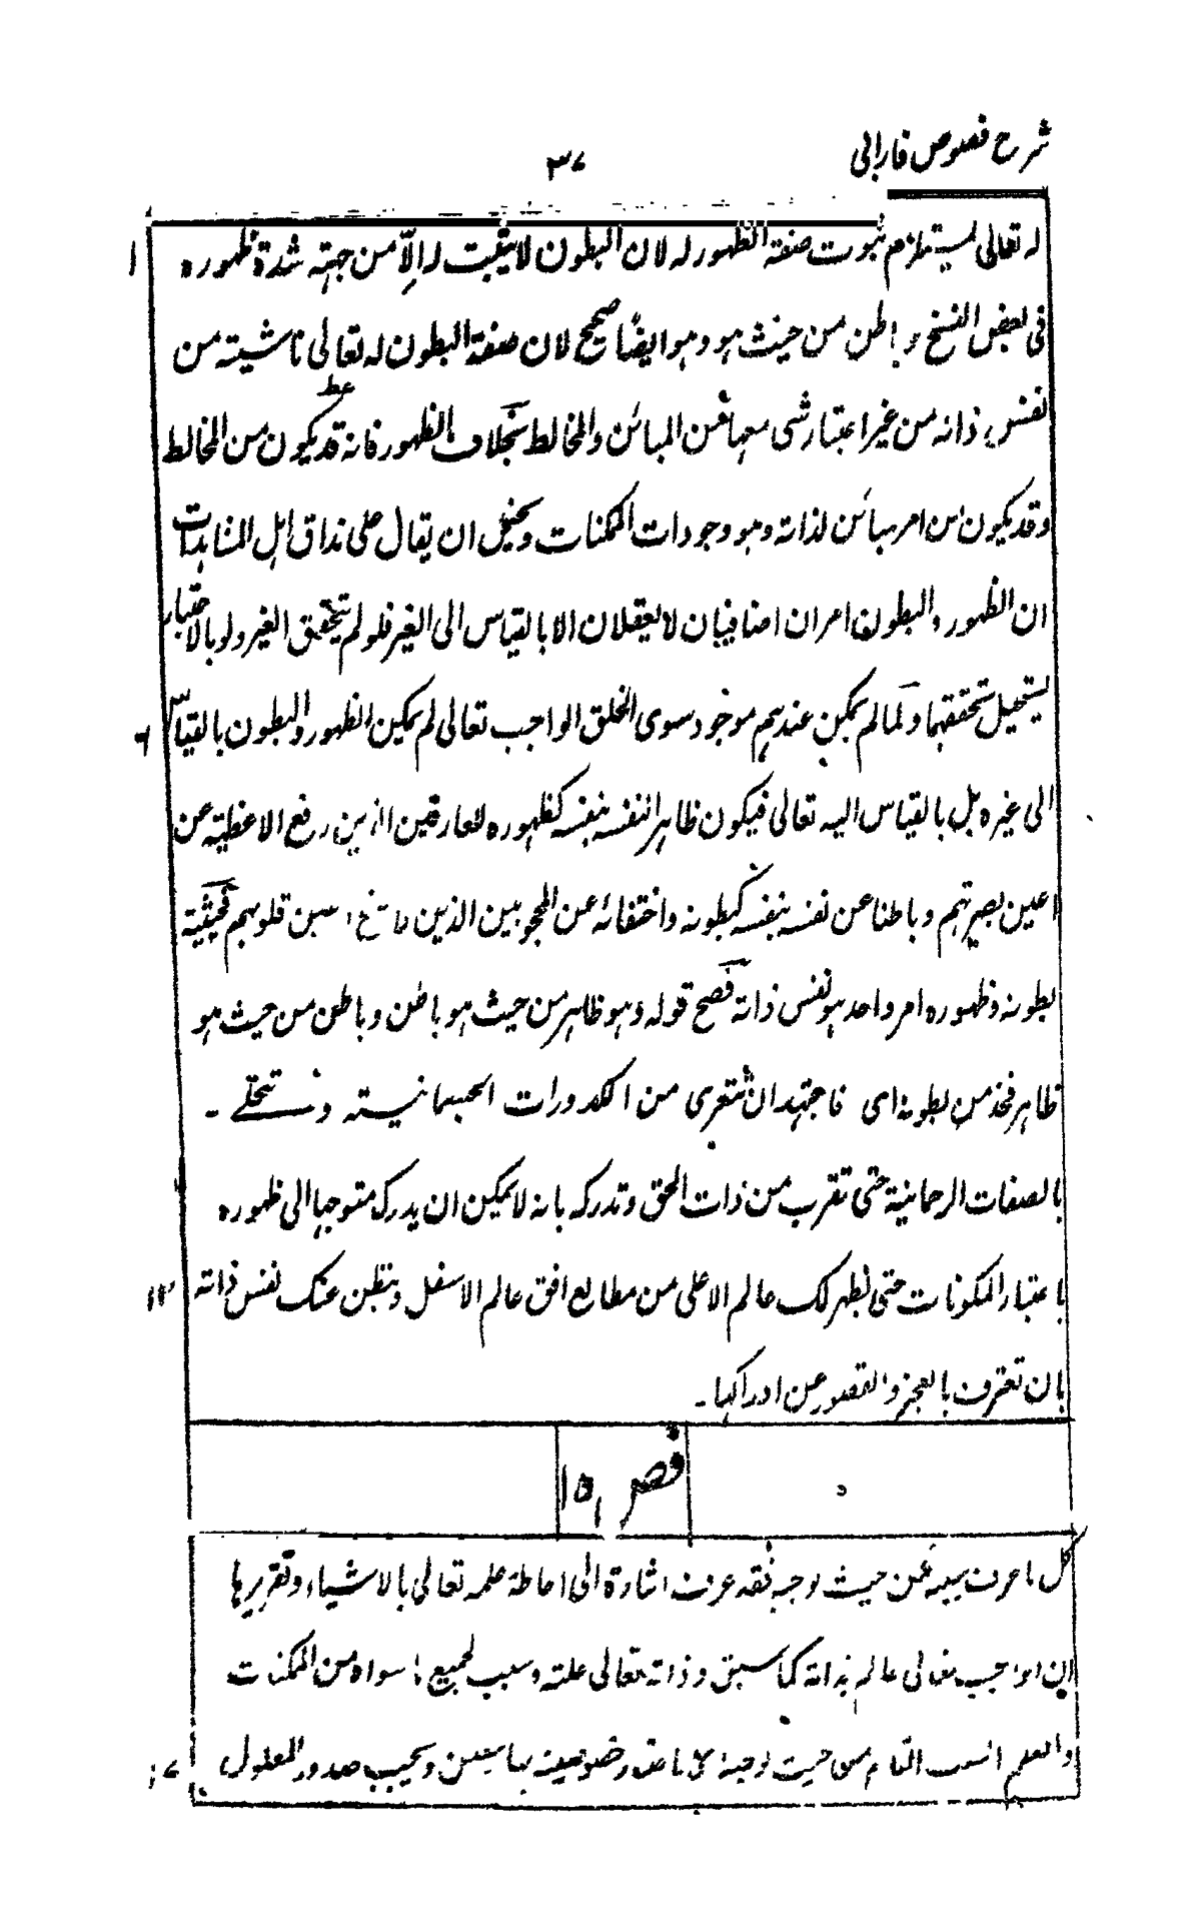 شرح فصوص فارابی
۳۷
له تعالى يستلزم ثبوت صفة الظهور له لان البطون لا يثبت له الّا من جهته شدة ظهوره
۱
فى بعض النسخ و باطن من حيث هو وهو ايضًا صحيح لان صفة البطون له تعالى ناشيته من
نفس ذاته من غير اعتبار شى معها عن المبائن والمخالط بخلاف الظهور فانه قد يكون من المخالط
وقد يكون من امر مبائن لذاته وهو وجودات الممكنات ويحتمل ان يقال على مذاق اهل المشاهدات
ان الظهور والبطون امران اضافيان لا يعقلان الا بالقياس الى الغير فلو لم يتحقق الغير ولو بالاعتبار
يستحيل تحققهما ولما لم يكن عندهم موجود سوى الخلق الواجب تعالى لم يكن الظهور والبطون بالقياس
۶
الى غيره بل بالقياس اليه تعالى فيكون ظاهرا لنفسه بنفسه كظهوره للعارفين الذين رفع الاغطية عن
اعين بصيرتهم وباطنا عن نفسه بنفسه كبطونه واختفائه عن المحجوبين الذين قلوبهم فحيثية
بطونه وظهوره امر واحد هو نفس ذاته فصح قوله وهو ظاهر من حيث هو باطن وباطن من حيث هو
ظاهر فخذ من بطونه اى فاجتهد ان تتعرى من الكدورات الجسمانيسته و تتحلے ۔
بالصفات الرحمانية حتى تقرب من ذات الحق وتدركه بانه لا يمكن ان يدرك متوجها الى ظهوره
باعتبار المكونات حتى يظهر لك عالم الاعلى من مطالع افق عالم الاسفل ويبطن عنك نفس ذاته
۱۲
بان تعترف بالعجز والقصور عن ادراكها ۔
فص ۱۵
كل ما عرف سببه من حيث يوجبه فقد عرف اشارة الى احاطة علمه تعالى بالاشياء وتقريرها
ان الواجب تعالى عالم بذاته كما سبق وذاته تعالى علته وسبب لجميع ما سواه من الممكنات
والعلم السبب التام من حيث يوجبه وخصوصيته بها يتعين ويجب صدور المعلول